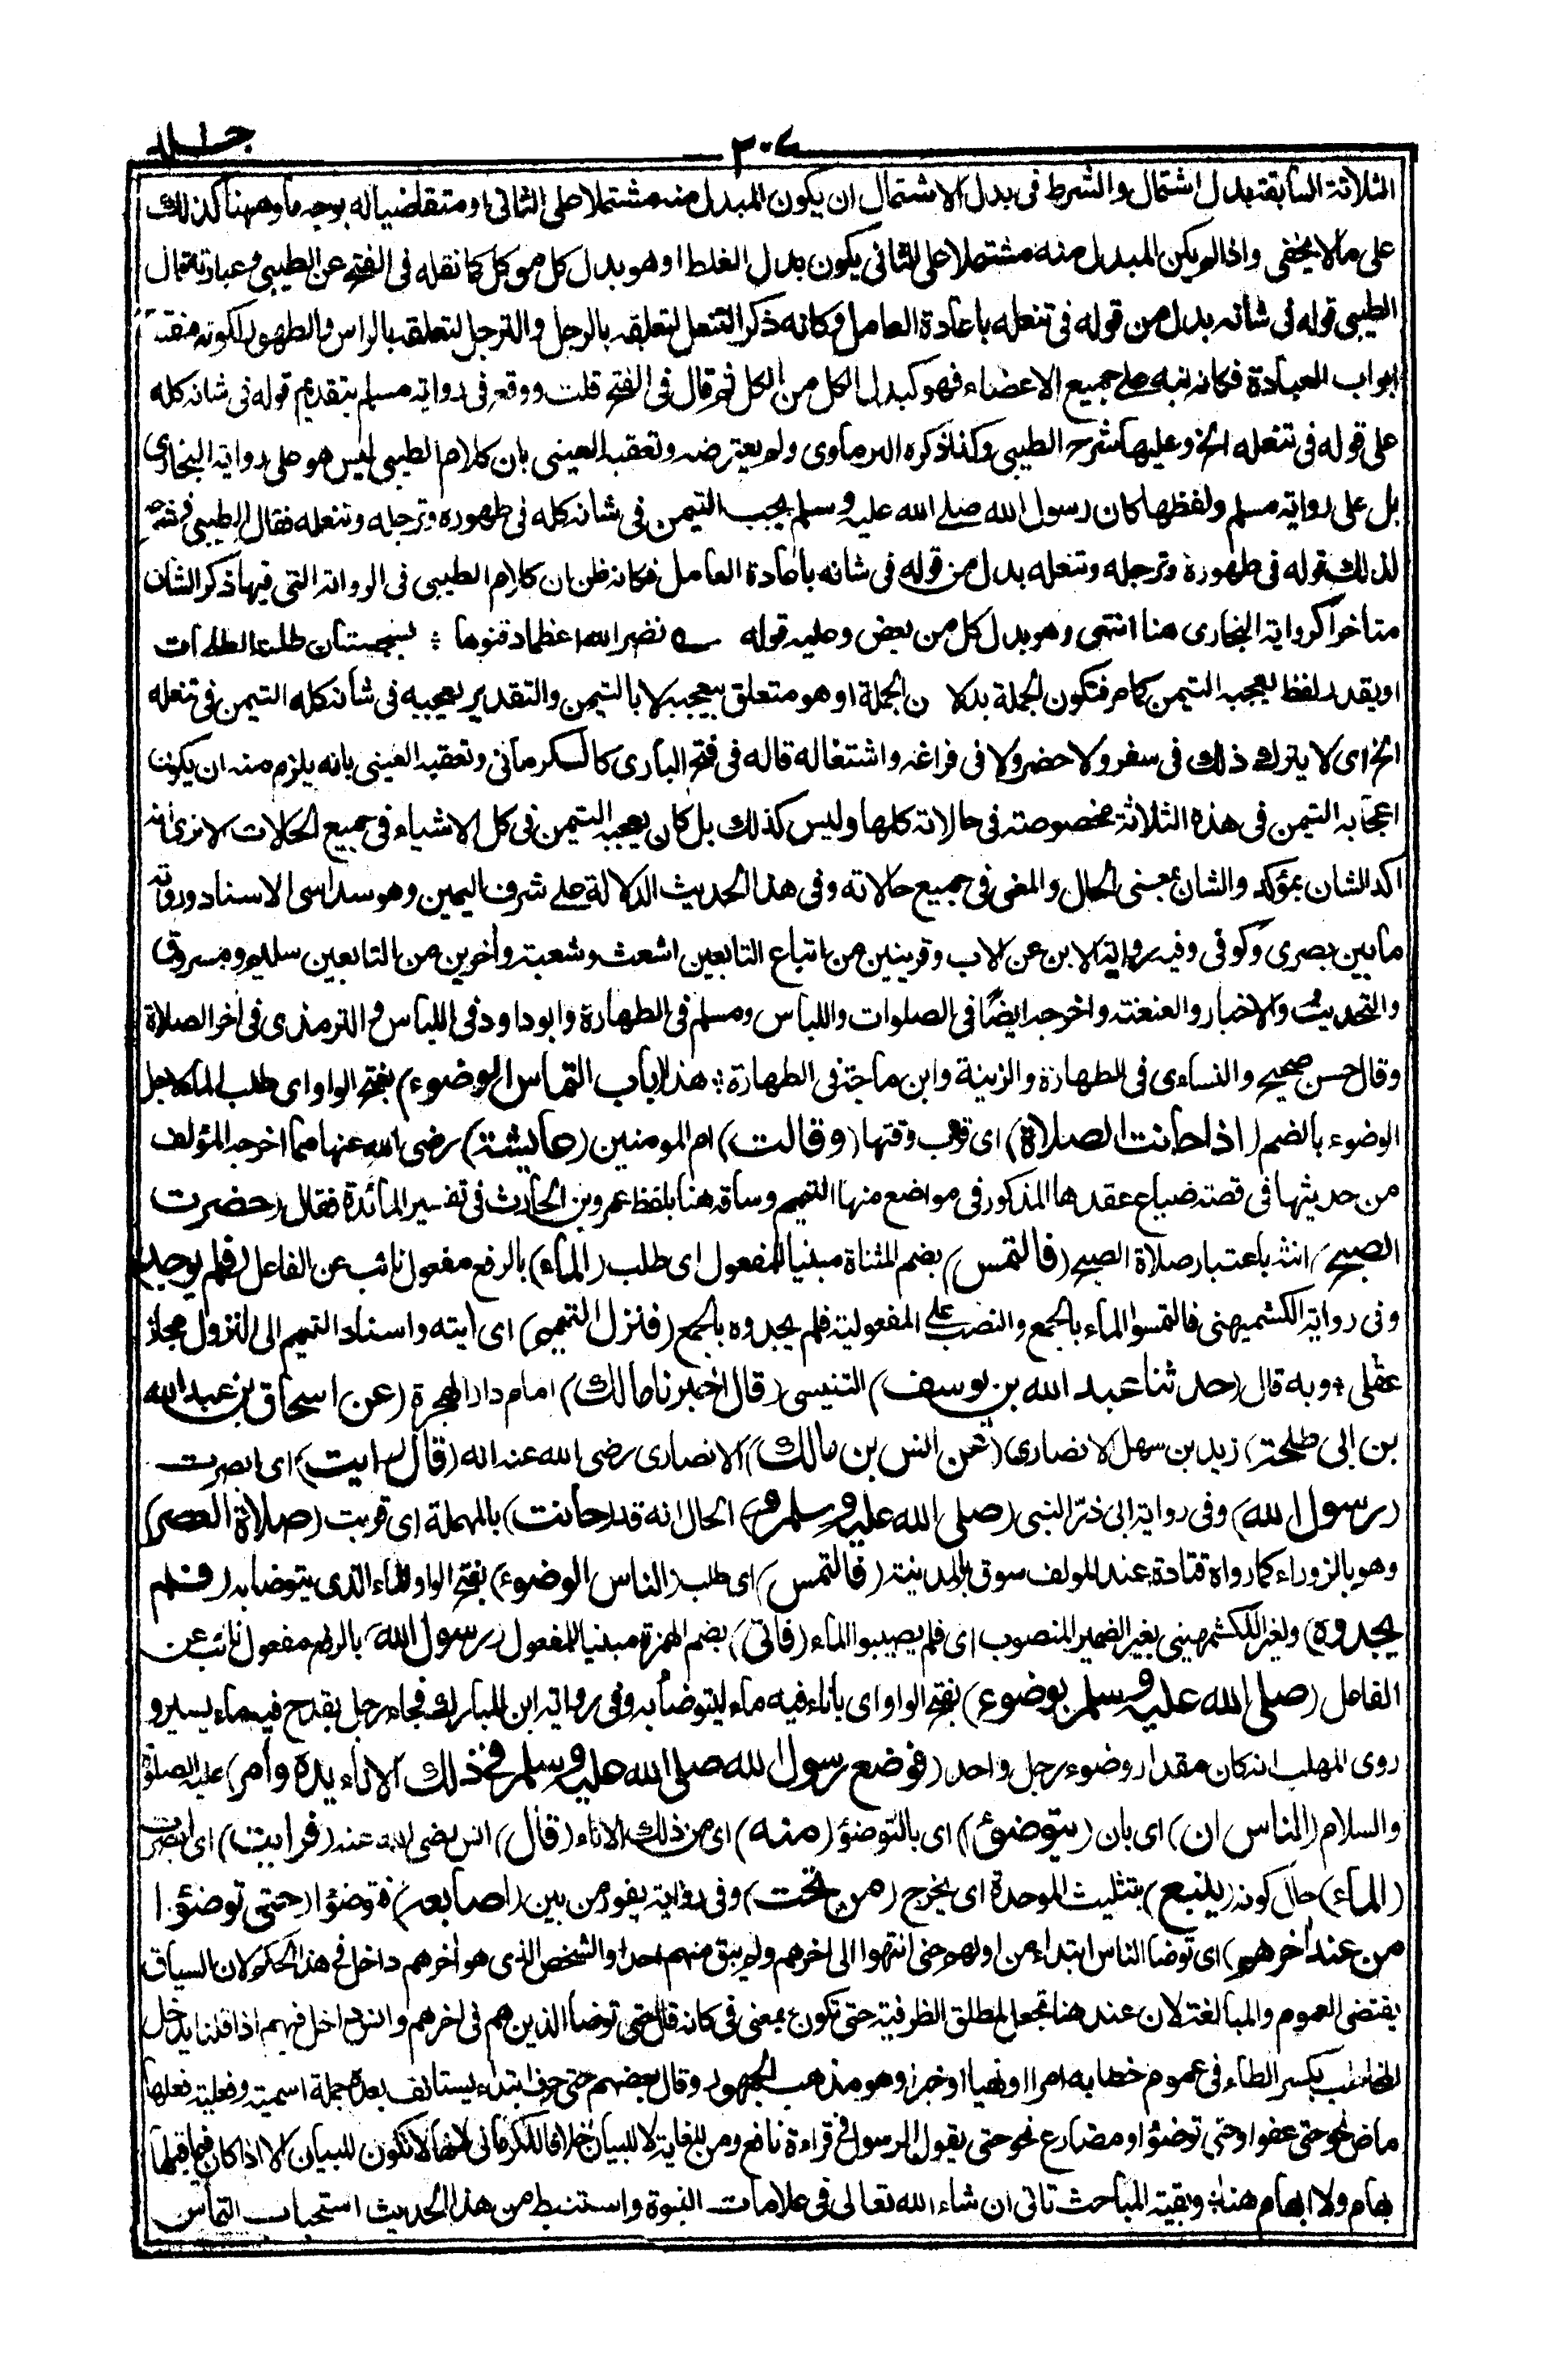 جلد ١
٣٠٧
الثلاثة السابقة بدل اشتمال والشرط فى بدل الاشتمال ان يكون المبدل منه مشتملا على الثانى او متقاضيا له بوجه ما وههنا كذلك
على ما لا يخفى واذا لم يكن المبدل منه مشتملا على الثانى يكون بدل الغلط او هو بدل كل من كل كما نقله فى الفتح عن الطيبى وعبارته قال
الطيبى قوله فى شانه بدل من قوله فى تنعله باعادة العامل وكانه ذكر التنعل لتعلقه بالرجل والترجل لتعلقه بالراس والطهور لكونه مفتاح
ابواب العبادة فكانه نبه على جميع الاعضاء فهو كبدل الكل من الكل ثم قال فى الفتح قلت ووقع فى رواية مسلم بتقديم قوله فى شانه كله
على قوله فى تنعله الخ وعليها شرح الطيبى وكذا ذكره البرماوى ولم يعترضه وتعقبه العينى بان كلام الطيبى ليس هو على رواية البخارى
بل على رواية مسلم ولفظها كان رسول الله صلے الله عليه وسلم يحب التيمن فى شانه كله فى طهوره وترجله وتنعله فقال الطيبى فى شرحه
لذلك قوله فى طهوره وترجله وتنعله بدل من قوله فى شانه باعادة العامل فكانه ظن ان كلام الطيبى فى الرواية التى فيها ذكر الشان
متاخرا كرواية البخارى هنا انتهى وهو بدل كل من بعض وعليه قوله نضر الله اعظما دفنوها ؛ بسجستان طلحة الطلحات
او يقدر لفظ يعجبه التيمن كما مر فتكون الجملة بدلا من الجملة او هو متعلق بيعجبه لا بالتيمن والتقدير يعجبه فى شانه كله التيمن فى تنعله
الخ اى لا يترك ذلك فى سفر ولا حضر ولا فى فراغه واشتغاله قاله فى فتح البارى كالكرمانى وتعقبه العينى بانه يلزم منه ان يكون
اعجابه التيمن فى هذه الثلاثة مخصوصة فى حالاته كلها وليس كذلك بل كان يعجبه التيمن فى كل الاشياء فى جميع الحالات الا ترى انه
اكد الشان بمؤكد والشان بمعنى الحال والمعنى فى جميع حالاته وفى هذا الحديث الدلالة على شرف اليمين وهو سداسى الاسناد ورواته
ما بين بصرى وكوفى وفيه رواية الابن عن الاب وقرينين من اتباع التابعين اشعث وشعبة واخرين من التابعين سليم ومسروق
والتحديث والاخبار والعنعنة واخرجه ايضًا فى الصلوات واللباس ومسلم فى الطهارة وابو داود فى اللباس والترمذى فى اخر الصلاة
وقال حسن صحيح والنساءى فى الطهارة والزينة وابن ماجة فى الطهارة ؛ هذا (باب التماس الوضوء) بفتح الواو اى طلب الماء لاجل
الوضوء بالضم (اذا حانت الصلاة) اى قرب وقتها (وقالت) ام المومنين (عايشة) رضى الله عنها مما اخرجه المؤلف
من حديثها فى قصة ضياع عقدها المذكور فى مواضع منها التيمم وساقه هنا بلفظ عمرو بن الحارث فى تفسير المائدة فقال (حضرت
الصبح) انثه باعتبار صلاة الصبح (فالتمس) بضم المثناة مبنيا للمفعول اى طلب (الماء) بالرفع مفعول نائب عن الفاعل (فلم يوجد)
وفى رواية الكشميهنى فالتمسوا الماء بالجمع والنصب على المفعولية فلم يجدوه بالجمع (فنزل التيمم) اى ايته واسناد التيمم الى النزول مجاز
عقلى ؛ وبه قال (حدثنا عبد الله بن يوسف) التنيسى (قال اخبرنا مالك) امام دار الهجرة (عن اسحاق بن عبد الله
بن ابى طلحة) زيد بن سهل الانصارى (عن انس بن مالك) الانصارى رضى الله عنه انه (قال رايت) اى ابصرت
(رسول الله) وفى رواية ابى ذرّ النبى (صلى الله عليه وسلم و) الحال انه قد (حانت) بالمهملة اى قربت (صلاة العصر)
وهو بالزوراء كما رواه قتادة عند المولف سوق بالمدينة (فالتمس) اى طلب (الناس الوضوء) بفتح الواو الماء الذى يتوضا به (فلم
يجدوه) ولغير الكشميهينى بغير الضمير المنصوب اى فلم يصيبوا الماء (فاتى) بضم الهمزة مبنيا للمفعول (رسول الله) بالرفع مفعول نائب عن
الفاعل (صلى الله عليه وسلم بوضوء) بفتح الواو اى باناء فيه ماء ليتوضأ به وفى رواية ابن المبارك فجاء رجل بقدح فيه ماء يسير و
روى المهلب انه كان مقدار وضوء رجل واحد (فوضع رسول الله صلى الله عليه وسلم فى ذلك الاناء يده وأمر) عليه الصلوة
والسلام (الناس ان) اى بان (يتوضئوا) اى بالتوضؤ (منه) اى من ذلك الاناء (قال) انس رضى الله عنه (فرايت) اى ابصرت
(الماء) حال كونه (ينبع) بتثليث الموحدة اى يخرج (من تحت) وفى رواية يفور من بين (اصابعه) فتوضؤا (حتى توضؤا
من عند اخرهم) اى توضا الناس ابتداء من اولهم حتى انتهوا الى اخرهم ولم يبق منهم احد والشخص الذى هو اخرهم داخل فى هذا الحكم لان السياق
يقتضى العموم والمبالغة لان عند هنا تجعل لمطلق الظرفية حتى تكون بمعنى فى كانه قال حتى توضأ الذين هم فى اخرهم وانس داخل فيهم اذا قلنا يدخل
المخاطب بكسر الطاء فى عموم خطابه امرا او نهيا او خبرا وهو مذهب الجمهور وقال بعضهم حتى حرف ابتداء يستانف بعده جملة اسمية وفعلية فعلها
ماض نحو حتى عفوا وحتى توضؤا ومضارع نحو حتى يقول الرسول فى قراءة نافع ومن للغاية لا للبيان خلافا للكرمانى لانها لا تكون للبيان الا اذا كان فيما قبلها
ابهام ولا ابهام هنا ؛ وبقية المباحث تاتى ان شاء الله تعالى فى علامات النبوة واستنبط من هذا الحديث استحباب التماس